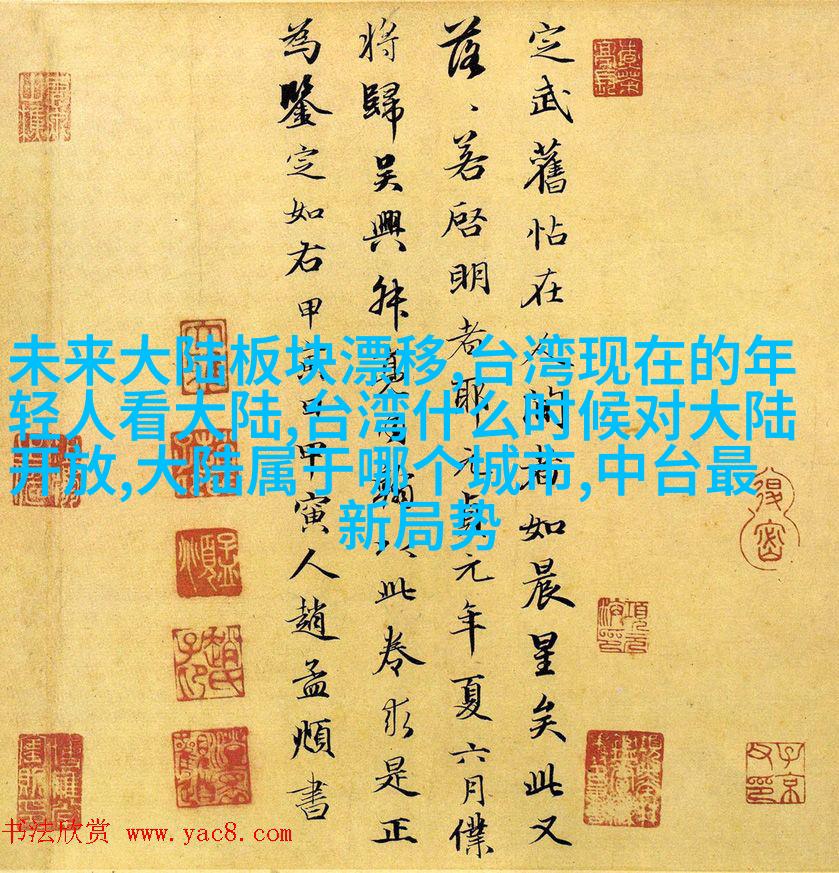 未来大陆板块漂移,台湾现在的年
轻人看大陆,台湾什么时候对大陆
开放,大陆属于哪个城市,中台最
新局势
定武舊帖在人間者如晨星矣此又
落、若啓明者耶元貞元年夏六月僕
將歸吳興叔亮內翰以此卷求是正
為鑒定如右甲寅日甲寅人趙孟頫書
子京父印
书法欣赏 www.yac8.com